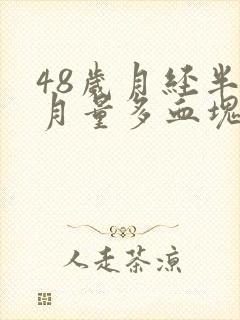 48歲月经半
月量多血塊
人走茶凉